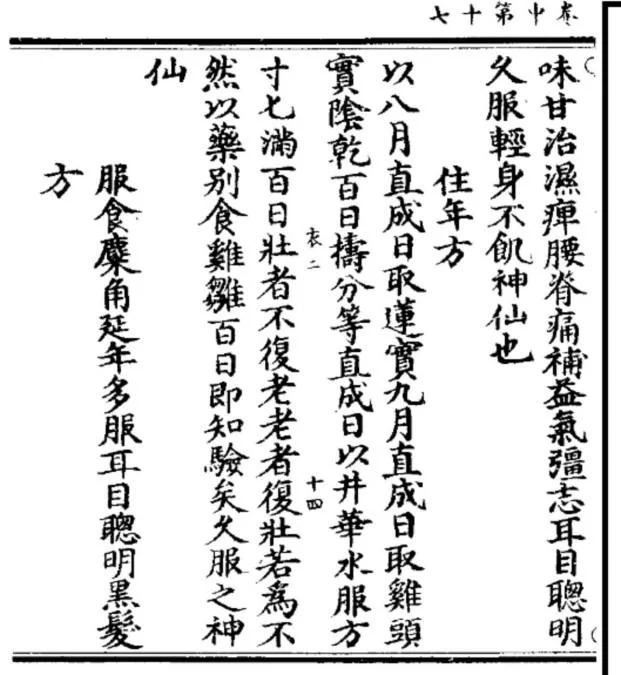 卷中第十七
味甘治濕痺腰脊痛補益氣彊志耳目聰明
久服輕身不飢神仙也
住年方
以八月直成日取蓮實九月直成日取雞頭
實陰乾百日擣分等直成日以井華水服方
衣二
十四
寸匕滿百日壯者不復老老者復壯若為不
然以藥別食雞雛百日即知驗矣久服之神
仙
服食麋角延年多服耳目聰明黑髮
方